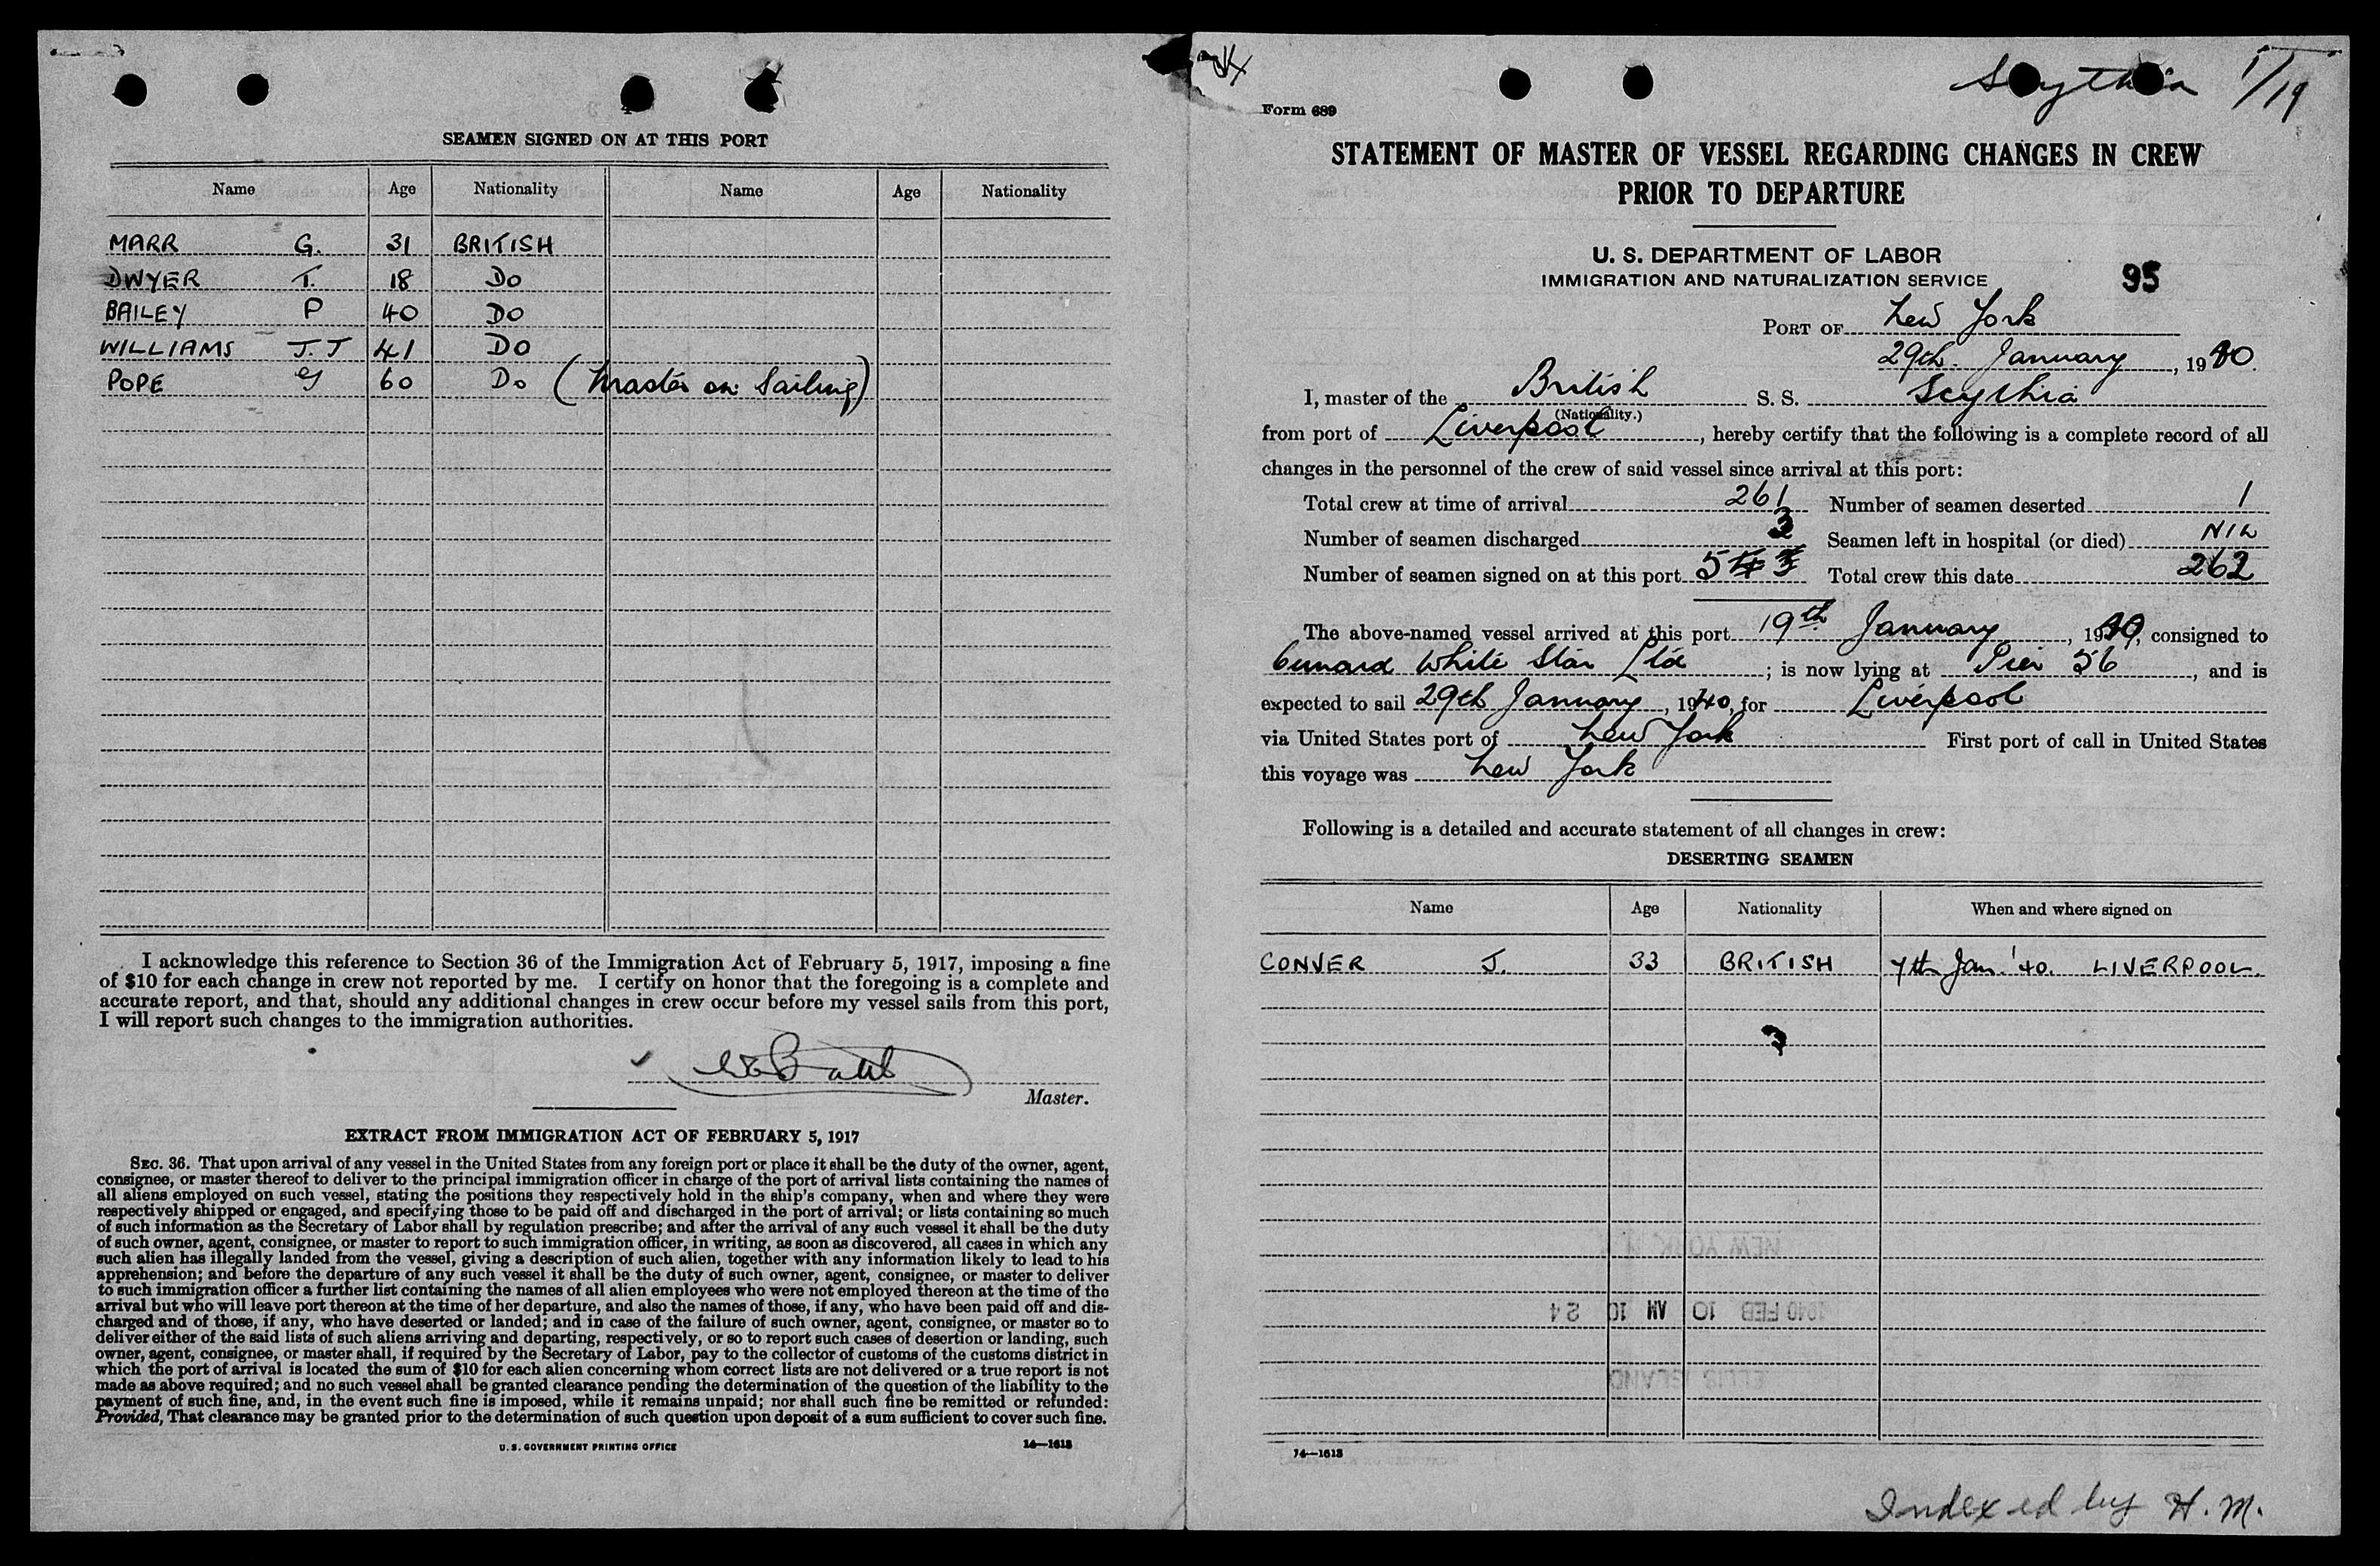 SEAMEN SIGNED ON AT THIS PORT
Name Age Nationality Name Age Nationality
MARR G. 31 BRITISH
DWYER T. 18 DO
BAILEY P 40 DO
WILLIAMS J.J 41 DO
POPE 60 Do (Master on Sailing)
I acknowledge this reference to Section 36 of the Immigration Act of February 5, 1917, imposing a fine
of $10 for each change in crew not reported by me. I certify on honor that the foregoing is a complete and
accurate report, and that, should any additional changes in crew occur before my vessel sails from this port,
I will report such changes to the immigration authorities.
Master.
EXTRACT FROM IMMIGRATION ACT OF FEBRUARY 5, 1917
SEC. 36. That upon arrival of any vessel in the United States from any foreign port or place it shall be the duty of the owner, agent,
consignee, or master thereof to deliver to the principal immigration officer in charge of the port of arrival lists containing the names of
all aliens employed on such vessel, stating the positions they respectively hold in the ship's company, when and where they were
respectively shipped or engaged, and specifying those to be paid off and discharged in the port of arrival; or lists containing so much
of such information as the Secretary of Labor shall by regulation prescribe; and after the arrival of any such vessel it shall be the duty
of such owner, agent, consignee, or master to report to such immigration officer, in writing, as soon as discovered, all cases in which any
such alien has illegally landed from the vessel, giving a description of such alien, together with any information likely to lead to his
apprehension; and before the departure of any such vessel it shall be the duty of such owner, agent, consignee, or master to deliver
to such immigration officer a further list containing the names of all alien employees who were not employed thereon at the time of the
arrival but who will leave port thereon at the time of her departure, and also the names of those, if any, who have been paid off and dis-
charged and of those, if any, who have deserted or landed; and in case of the failure of such owner, agent, consignee, or master so to
deliver either of the said lists of such aliens arriving and departing, respectively, or so to report such cases of desertion or landing, such
owner, agent, consignee, or master shall, if required by the Secretary of Labor, pay to the collector of customs of the customs district in
which the port of arrival is located the sum of $10 for each alien concerning whom correct lists are not delivered or a true report is not
made as above required; and no such vessel shall be granted clearance pending the determination of the question of the liability to the
payment of such fine, and, in the event such fine is imposed, while it remains unpaid; nor shall such fine be remitted or refunded:
Provided, That clearance may be granted prior to the determination of such question upon deposit of a sum sufficient to cover such fine.
U. S. GOVERNMENT PRINTING OFFICE 14—1613
Scythia 1/19
Form 689
STATEMENT OF MASTER OF VESSEL REGARDING CHANGES IN CREW
PRIOR TO DEPARTURE
U. S. DEPARTMENT OF LABOR
IMMIGRATION AND NATURALIZATION SERVICE
95
PORT OF New York
29th January, 1940.
I, master of the British S. S. Scythia
(Nationality.)
from port of Liverpool, hereby certify that the following is a complete record of all
changes in the personnel of the crew of said vessel since arrival at this port:
Total crew at time of arrival 261 Number of seamen deserted 1
Number of seamen discharged 3 Seamen left in hospital (or died) NIL
Number of seamen signed on at this port 5 Total crew this date 262
The above-named vessel arrived at this port 19th January, 1940, consigned to
Cunard White Star Ltd; is now lying at Pier 56, and is
expected to sail 29th January, 1940, for Liverpool
via United States port of New York First port of call in United States
this voyage was New York
Following is a detailed and accurate statement of all changes in crew:
DESERTING SEAMEN
Name Age Nationality When and where signed on
CONVER J. 33 BRITISH 7th Jan. '40. LIVERPOOL.
14—1613
Indexed by H. M.